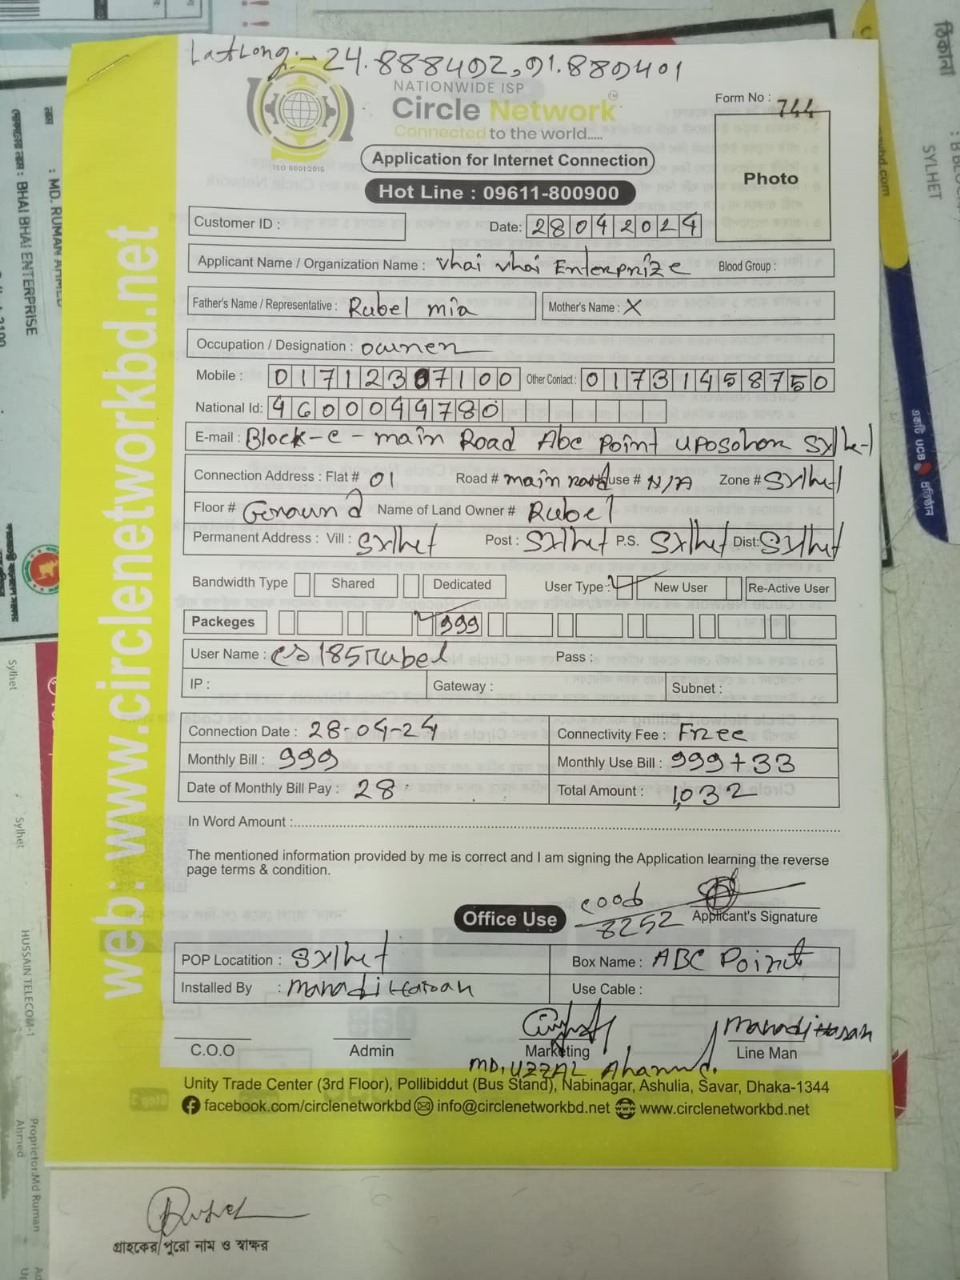 Lat Long:- 24.888402, 91.880401
NATIONWIDE ISP
Circle Network
Connected to the world.....
ISO 9001:2015
Form No : 744
Application for Internet Connection
Hot Line : 09611-800900
Photo
Customer ID :
Date: 28042024
Applicant Name / Organization Name : Vhai Vhai Enterprize Blood Group :
Father's Name / Representative : Rubel mia Mother's Name : X
Occupation / Designation : owner
Mobile : 01712307100 Other Contact : 01731458750
National Id: 4600049780
E-mail : Block-e - main Road Abc Point uposohor Sylhet
Connection Address : Flat # 01 Road # main road use # N/A Zone # Sylhet
Floor # Ground Name of Land Owner # Rubel
Permanent Address : Vill : Sylhet Post : Sylhet P.S. Sylhet Dist: Sylhet
Bandwidth Type Shared Dedicated User Type : New User Re-Active User
Packeges 999
User Name : cs185rubel Pass :
IP : Gateway : Subnet :
Connection Date : 28-04-24 Connectivity Fee : Free
Monthly Bill : 999 Monthly Use Bill : 999+33
Date of Monthly Bill Pay : 28 Total Amount : 1,032
In Word Amount :
The mentioned information provided by me is correct and I am signing the Application learning the reverse
page terms & condition.
8252
Office Use Applicant's Signature
POP Locatition : Sylhet Box Name : ABC Point
Installed By : Mahadi Hasan Use Cable :
Mahadi Hasan
C.O.O Admin Marketing Line Man
MD. UZZAL Ahamed.
Unity Trade Center (3rd Floor), Pollibiddut (Bus Stand), Nabinagar, Ashulia, Savar, Dhaka-1344
facebook.com/circlenetworkbd info@circlenetworkbd.net www.circlenetworkbd.net
web: www.circlenetworkbd.net
Rubel
গ্রাহকের পুরো নাম ও স্বাক্ষর
: MD. RUMAN AHMED
: BHAI BHAI ENTERPRISE
Sylhet
Sylhet
HUSSAIN TELECOM-1
Proprietor:Md Ruman
Ahmed
ঠিকানা
SYLHET